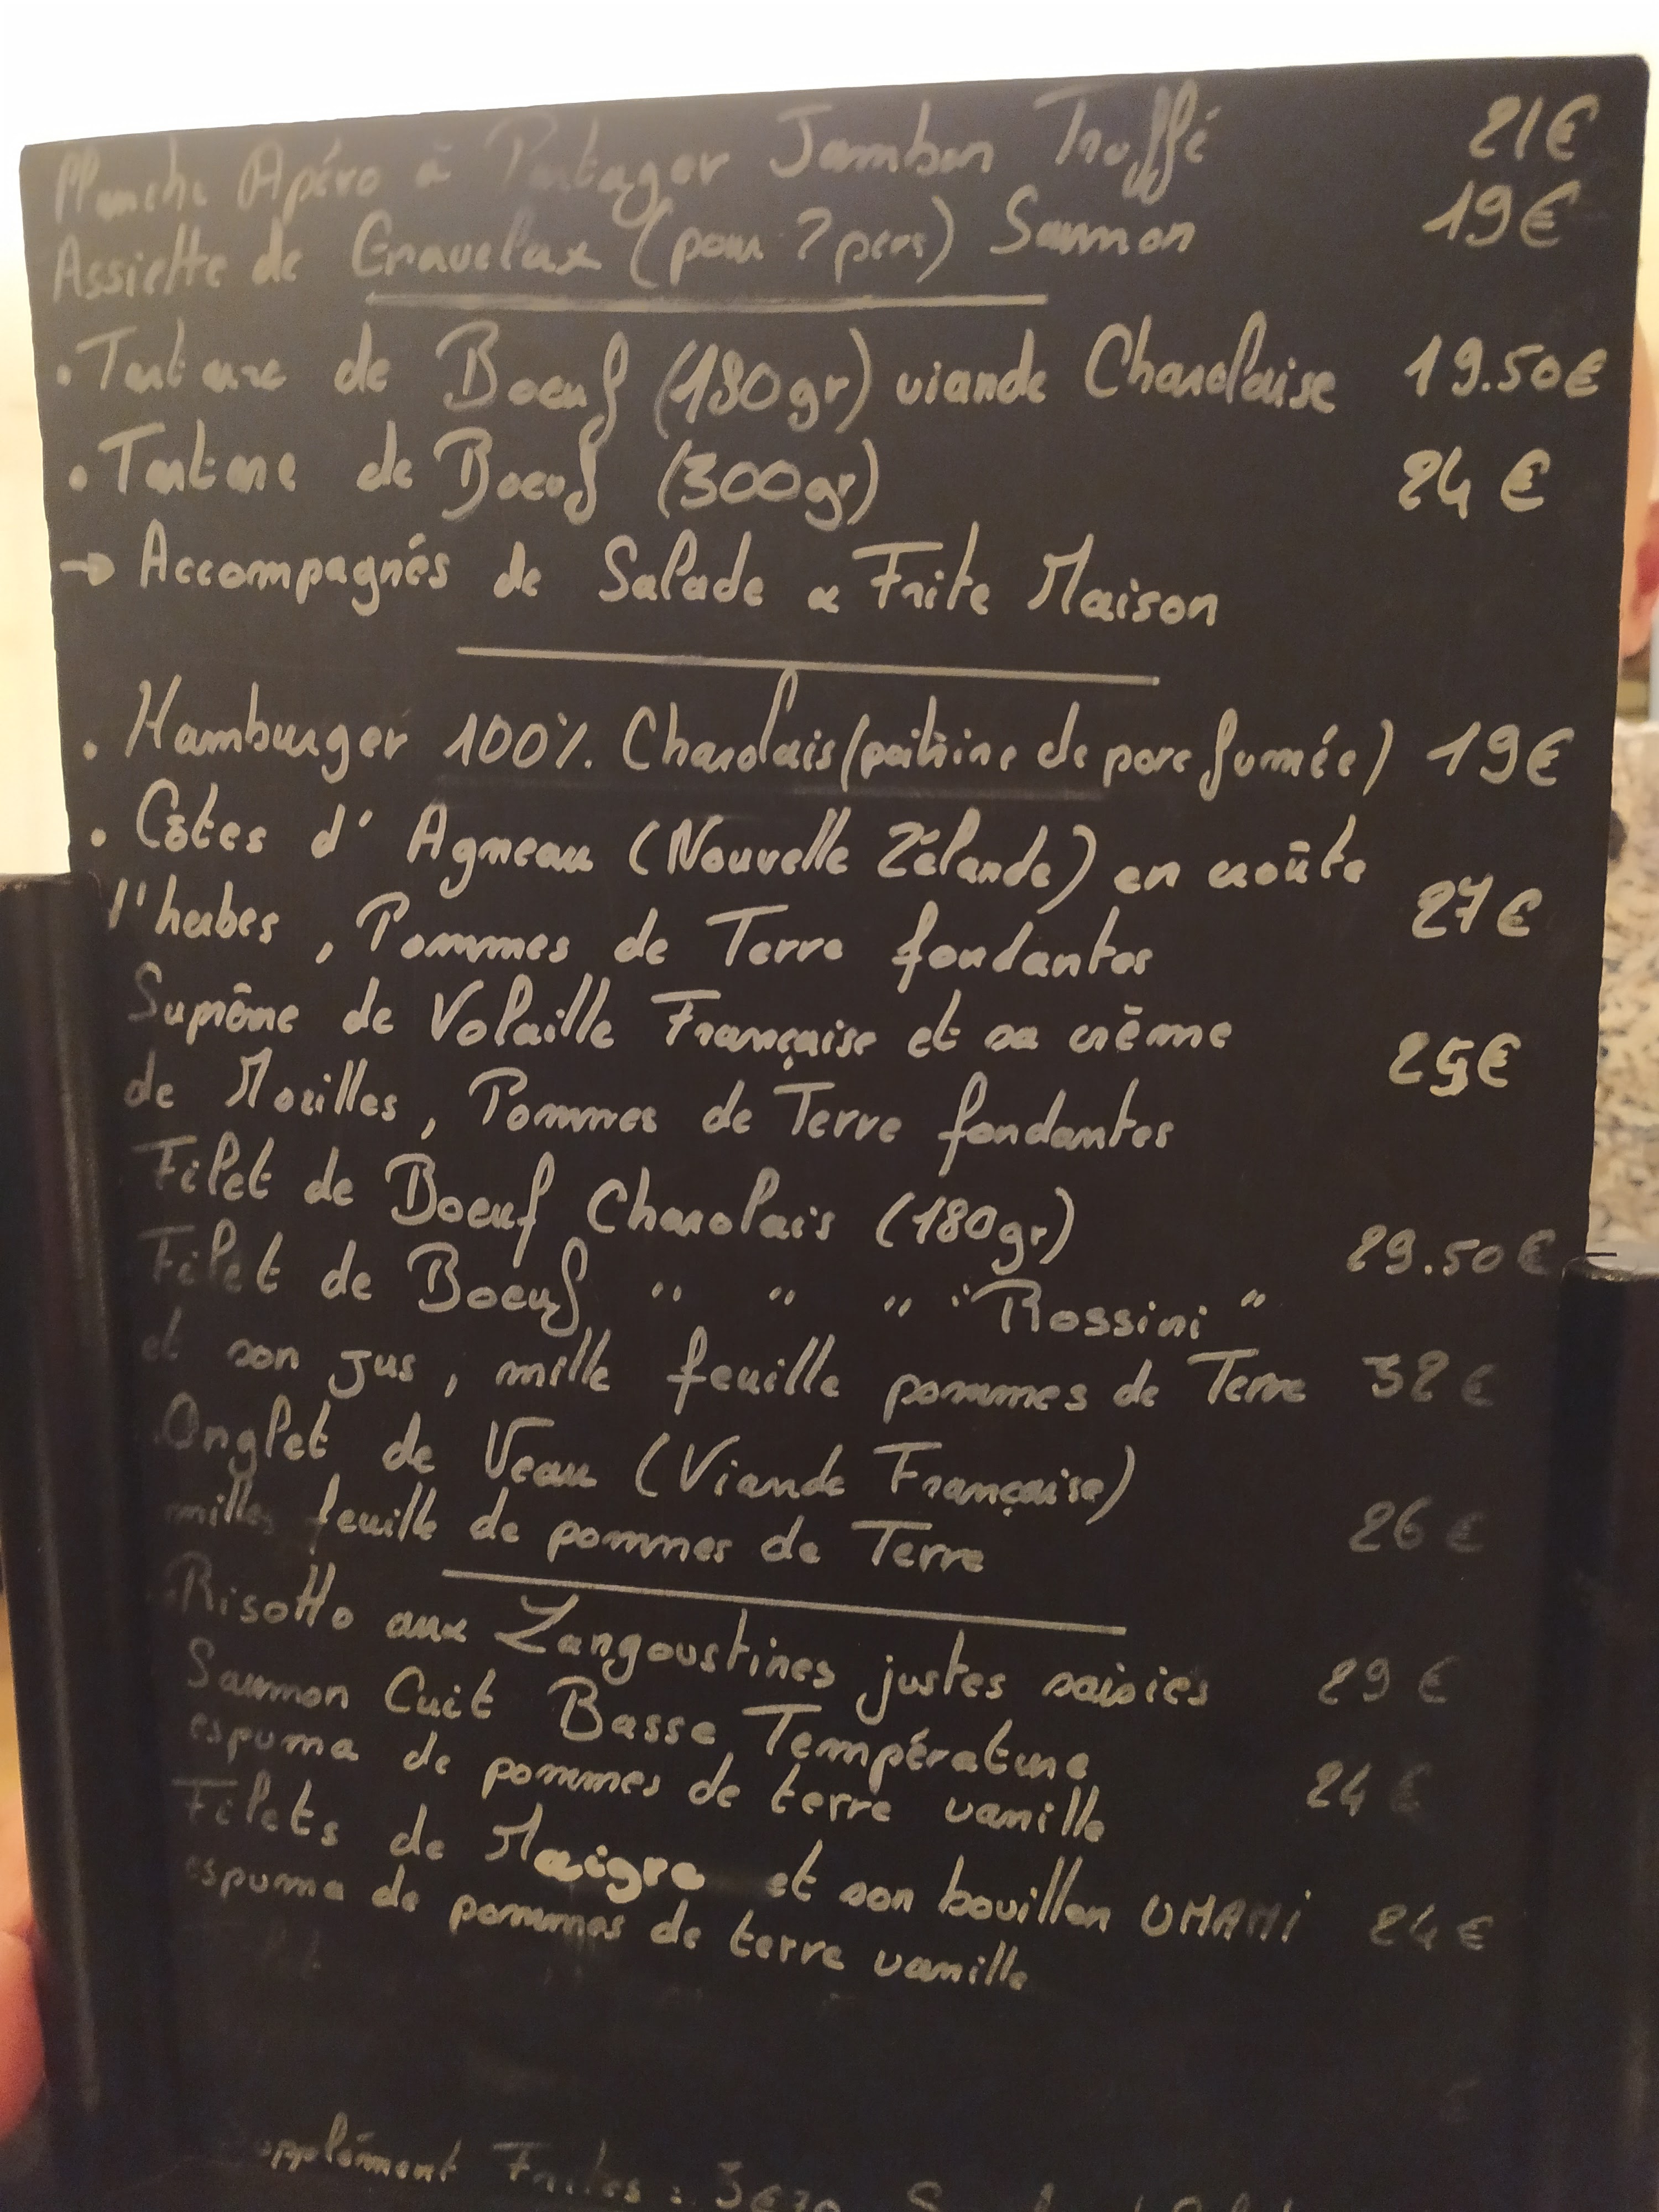 Planche Apéro à Partager Jambon Truffé 21€
Assiette de Gravelax (pour 2 pers) Saumon 19€
• Tartare de Boeuf (180gr) viande Charolaise 19.50€
• Tartare de Boeuf (300gr) 24€
→ Accompagnés de Salade & Frite Maison
• Hamburger 100% Charolais (poitrine de porc fumée) 19€
• Côtes d'Agneau (Nouvelle Zélande) en croûte
d'herbes, Pommes de Terre fondantes 27€
Suprême de Volaille Française et sa crème
de Morilles, Pommes de Terre fondantes 25€
Filet de Boeuf Charolais (180gr) 29.50€
Filet de Boeuf " " " "Rossini"
et son jus, mille feuille pommes de Terre 32€
Onglet de Veau (Viande Française)
mille feuille de pommes de Terre 26€
Risotto aux Langoustines justes saisies 29€
Saumon Cuit Basse Température
espuma de pommes de terre vanille 24€
Filets de Maigre et son bouillon UMAMi 24€
espuma de pommes de terre vanille
Frites :